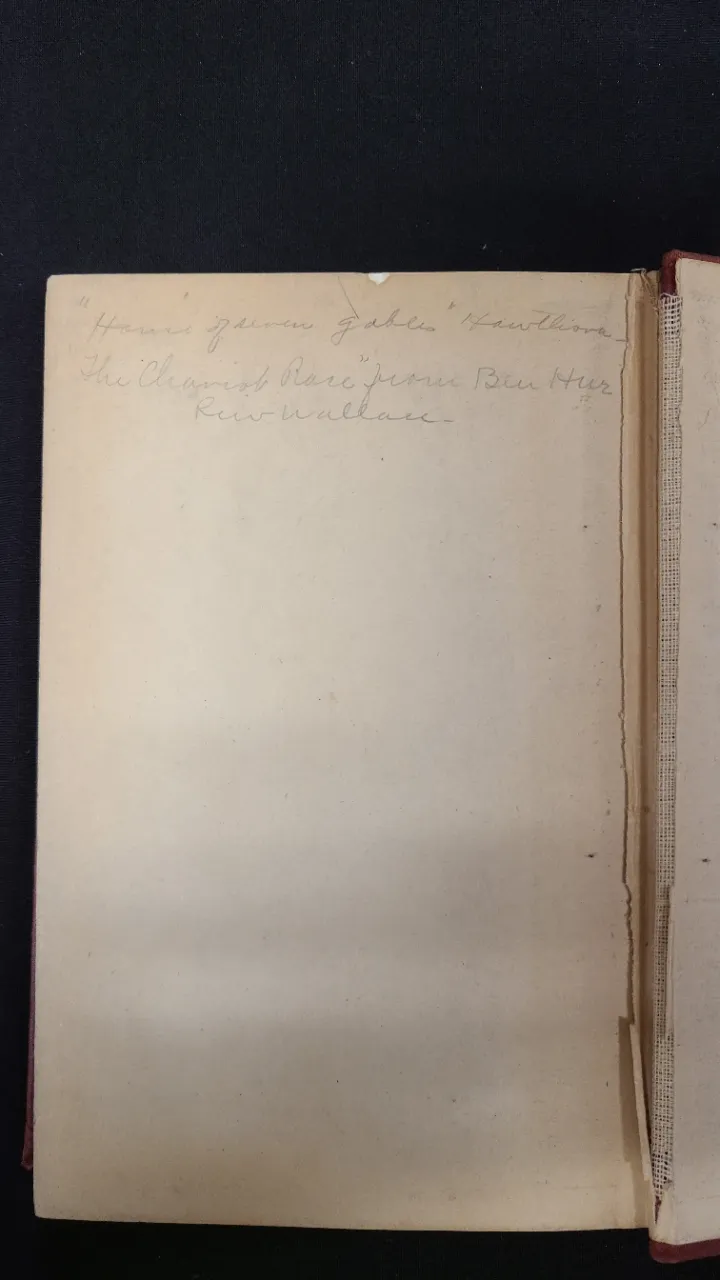 "House of seven gables" Hawthorne
The Chariot Race" from Ben Hur"
Lew Wallace -